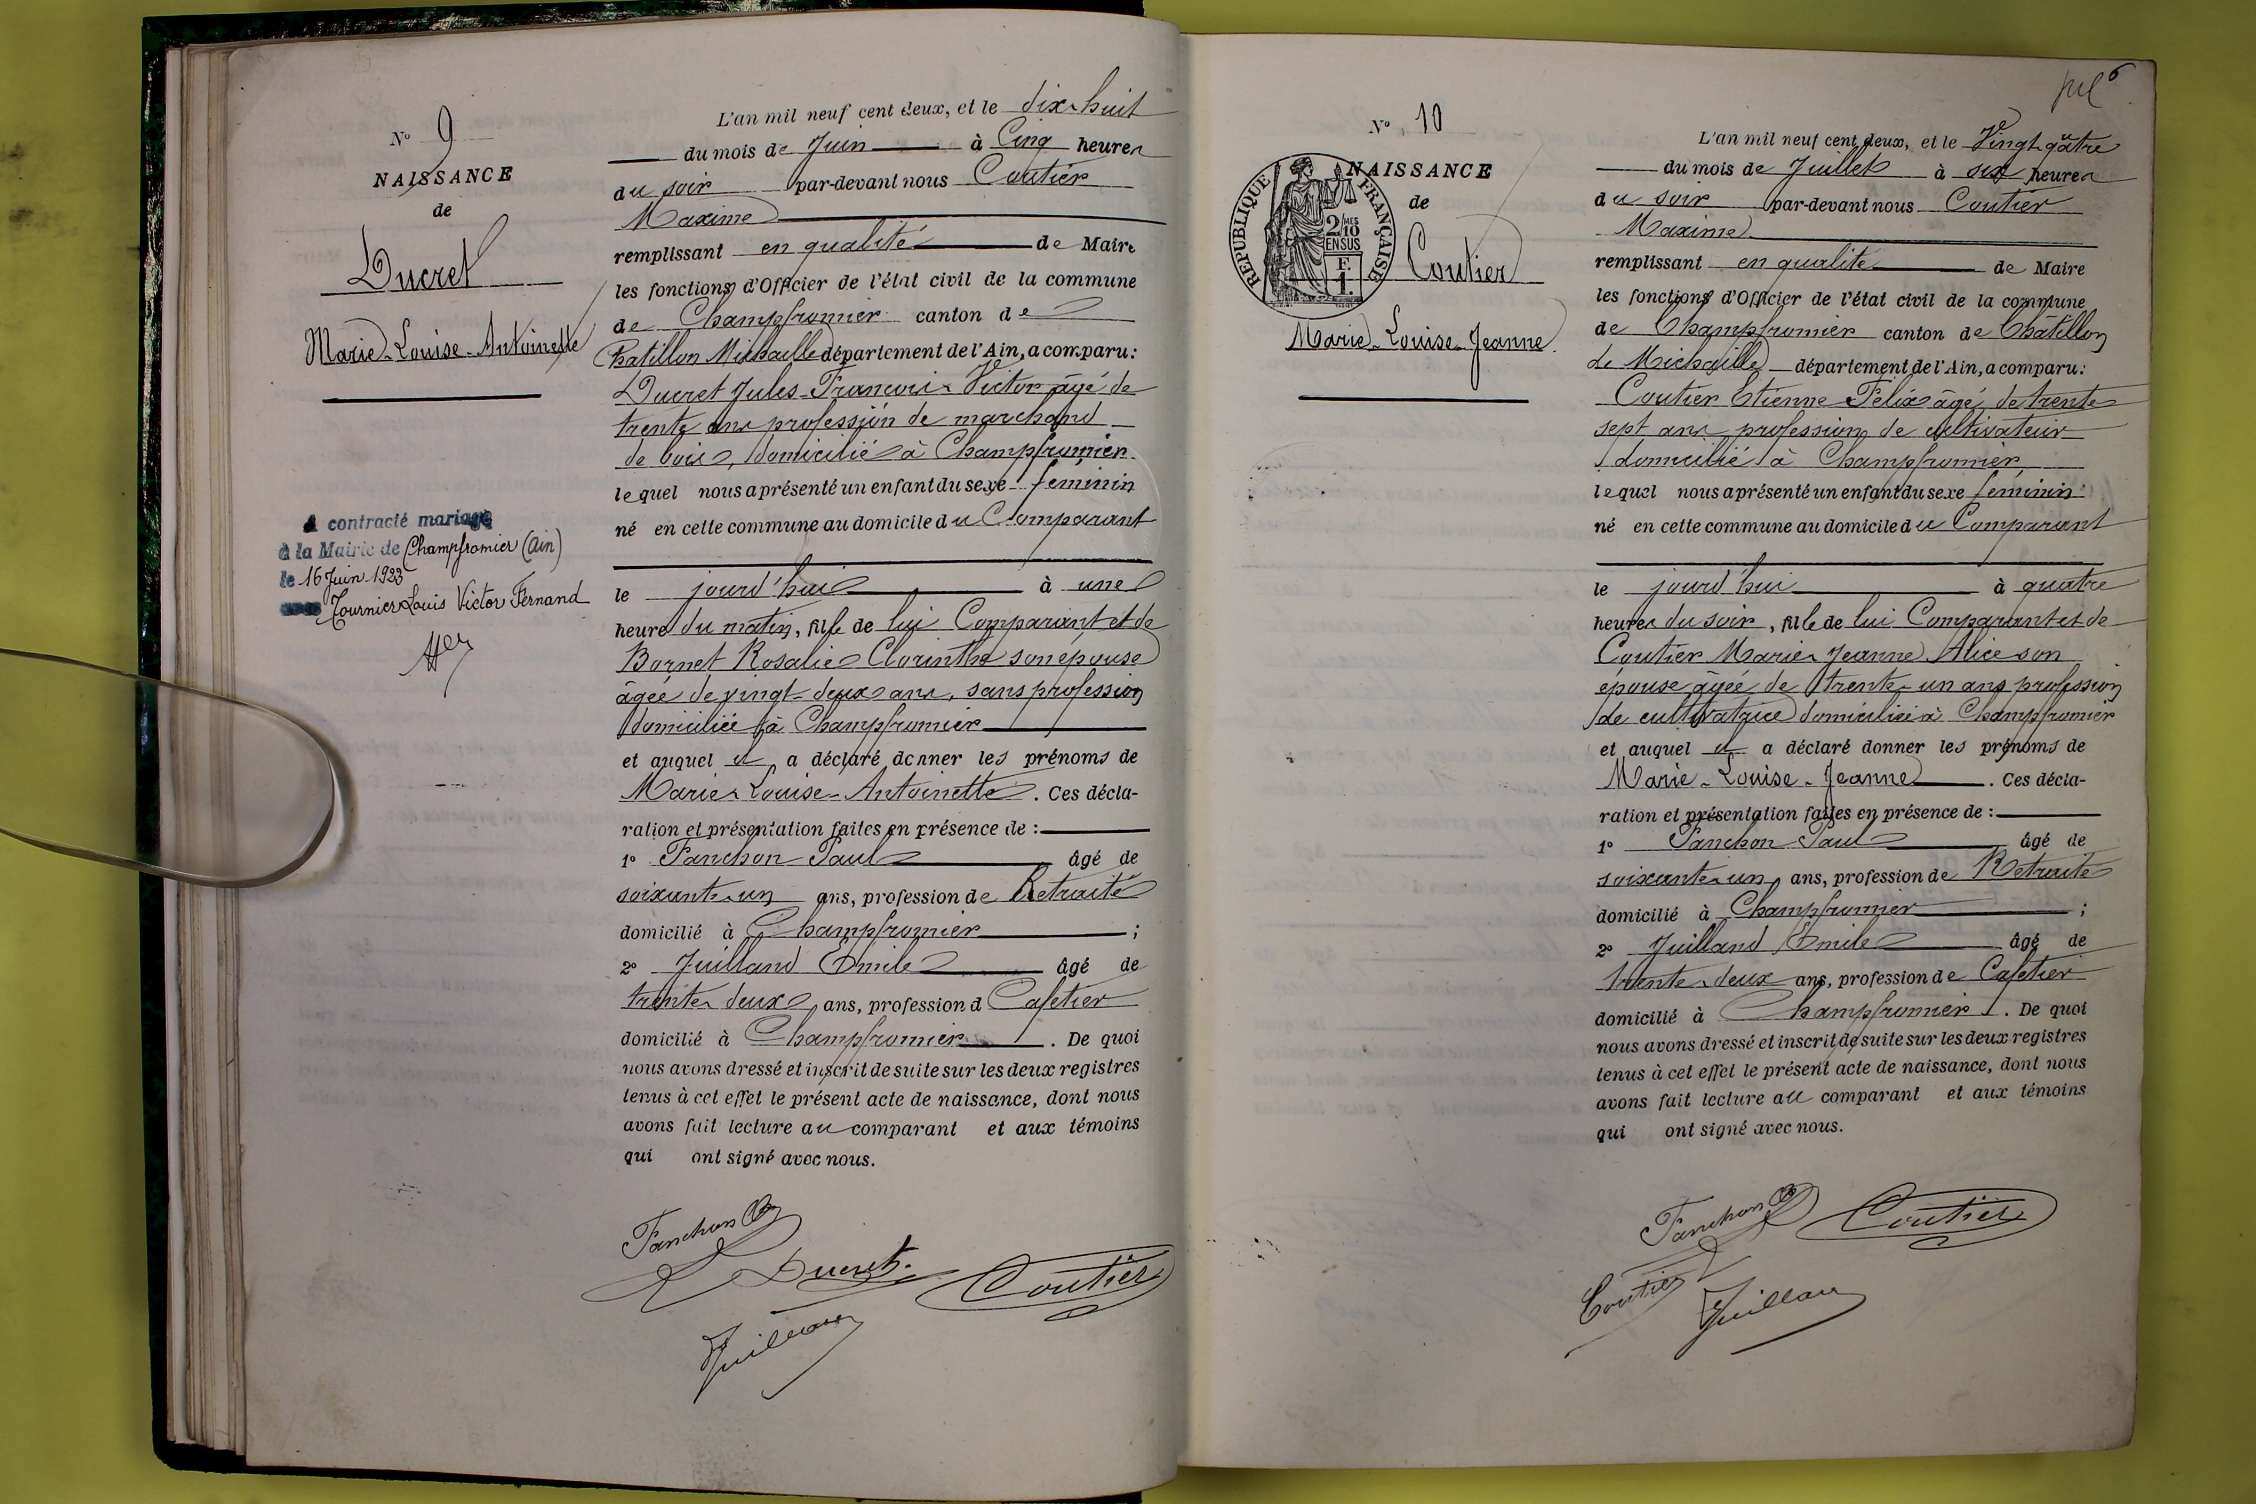 N° 9
NAISSANCE
de
Ducret
Marie-Louise-Antoinette
A contracté mariage
à la Mairie de Champfromier (Ain)
le 16 Juin 1923
avec Tournier Louis Victor Fernand
L'an mil neuf cent deux, et le dix-huit
du mois de Juin à Cinq heures
du soir par-devant nous Coutier
Maxime
remplissant en qualité de Maire
les fonctions d'Officier de l'état civil de la commune
de Champfromier canton de
Chatillon Michaille département de l'Ain, a comparu:
Ducret Jules-François-Victor âgé de
trente ans profession de marchand
de bois, domicilié à Champfromier
lequel nous a présenté un enfant du sexe féminin
né en cette commune au domicile du Comparant
le jourd'hui à une
heure du matin, fille de lui Comparant et de
Bornet Rosalie Clorinthe son épouse
âgée de vingt-deux ans, sans profession
domiciliée à Champfromier
et auquel il a déclaré donner les prénoms de
Marie-Louise-Antoinette. Ces décla-
ration et présentation faites en présence de :
1° Tanchon Paul âgé de
soixante-un ans, profession de Retraité
domicilié à Champfromier ;
2° Juilland Emile âgé de
trente-deux ans, profession d Cafetier
domicilié à Champfromier. De quoi
nous avons dressé et inscrit de suite sur les deux registres
tenus à cet effet le présent acte de naissance, dont nous
avons fait lecture au comparant et aux témoins
qui ont signé avec nous.
Tanchon
Ducret
Coutier
Juilland
6
N° 10
NAISSANCE
de
Coutier
Marie-Louise-Jeanne
RÉPUBLIQUE FRANÇAISE
2/10 MES
EN SUS
F.
1.
L'an mil neuf cent deux, et le Vingt-quatre
du mois de Juillet à six heures
du soir par-devant nous Coutier
Maxime
remplissant en qualité de Maire
les fonctions d'Officier de l'état civil de la commune
de Champfromier canton de Châtillon
de Michaille département de l'Ain, a comparu:
Coutier Etienne Félix âgé de trente
sept ans profession de cultivateur
domicilié à Champfromier
lequel nous a présenté un enfant du sexe féminin
né en cette commune au domicile du Comparant
le jourd'hui à quatre
heures du soir, fille de lui Comparant et de
Coutier Marie-Jeanne Alice son
épouse âgée de trente-un ans profession
de cultivatrice domiciliée à Champfromier
et auquel il a déclaré donner les prénoms de
Marie-Louise-Jeanne. Ces décla-
ration et présentation faites en présence de :
1° Tanchon Paul âgé de
soixante-un ans, profession de Retraité
domicilié à Champfromier ;
2° Juilland Emile âgé de
trente-deux ans, profession de Cafetier
domicilié à Champfromier. De quoi
nous avons dressé et inscrit de suite sur les deux registres
tenus à cet effet le présent acte de naissance, dont nous
avons fait lecture au comparant et aux témoins
qui ont signé avec nous.
Tanchon
Coutier
Coutier
Juilland